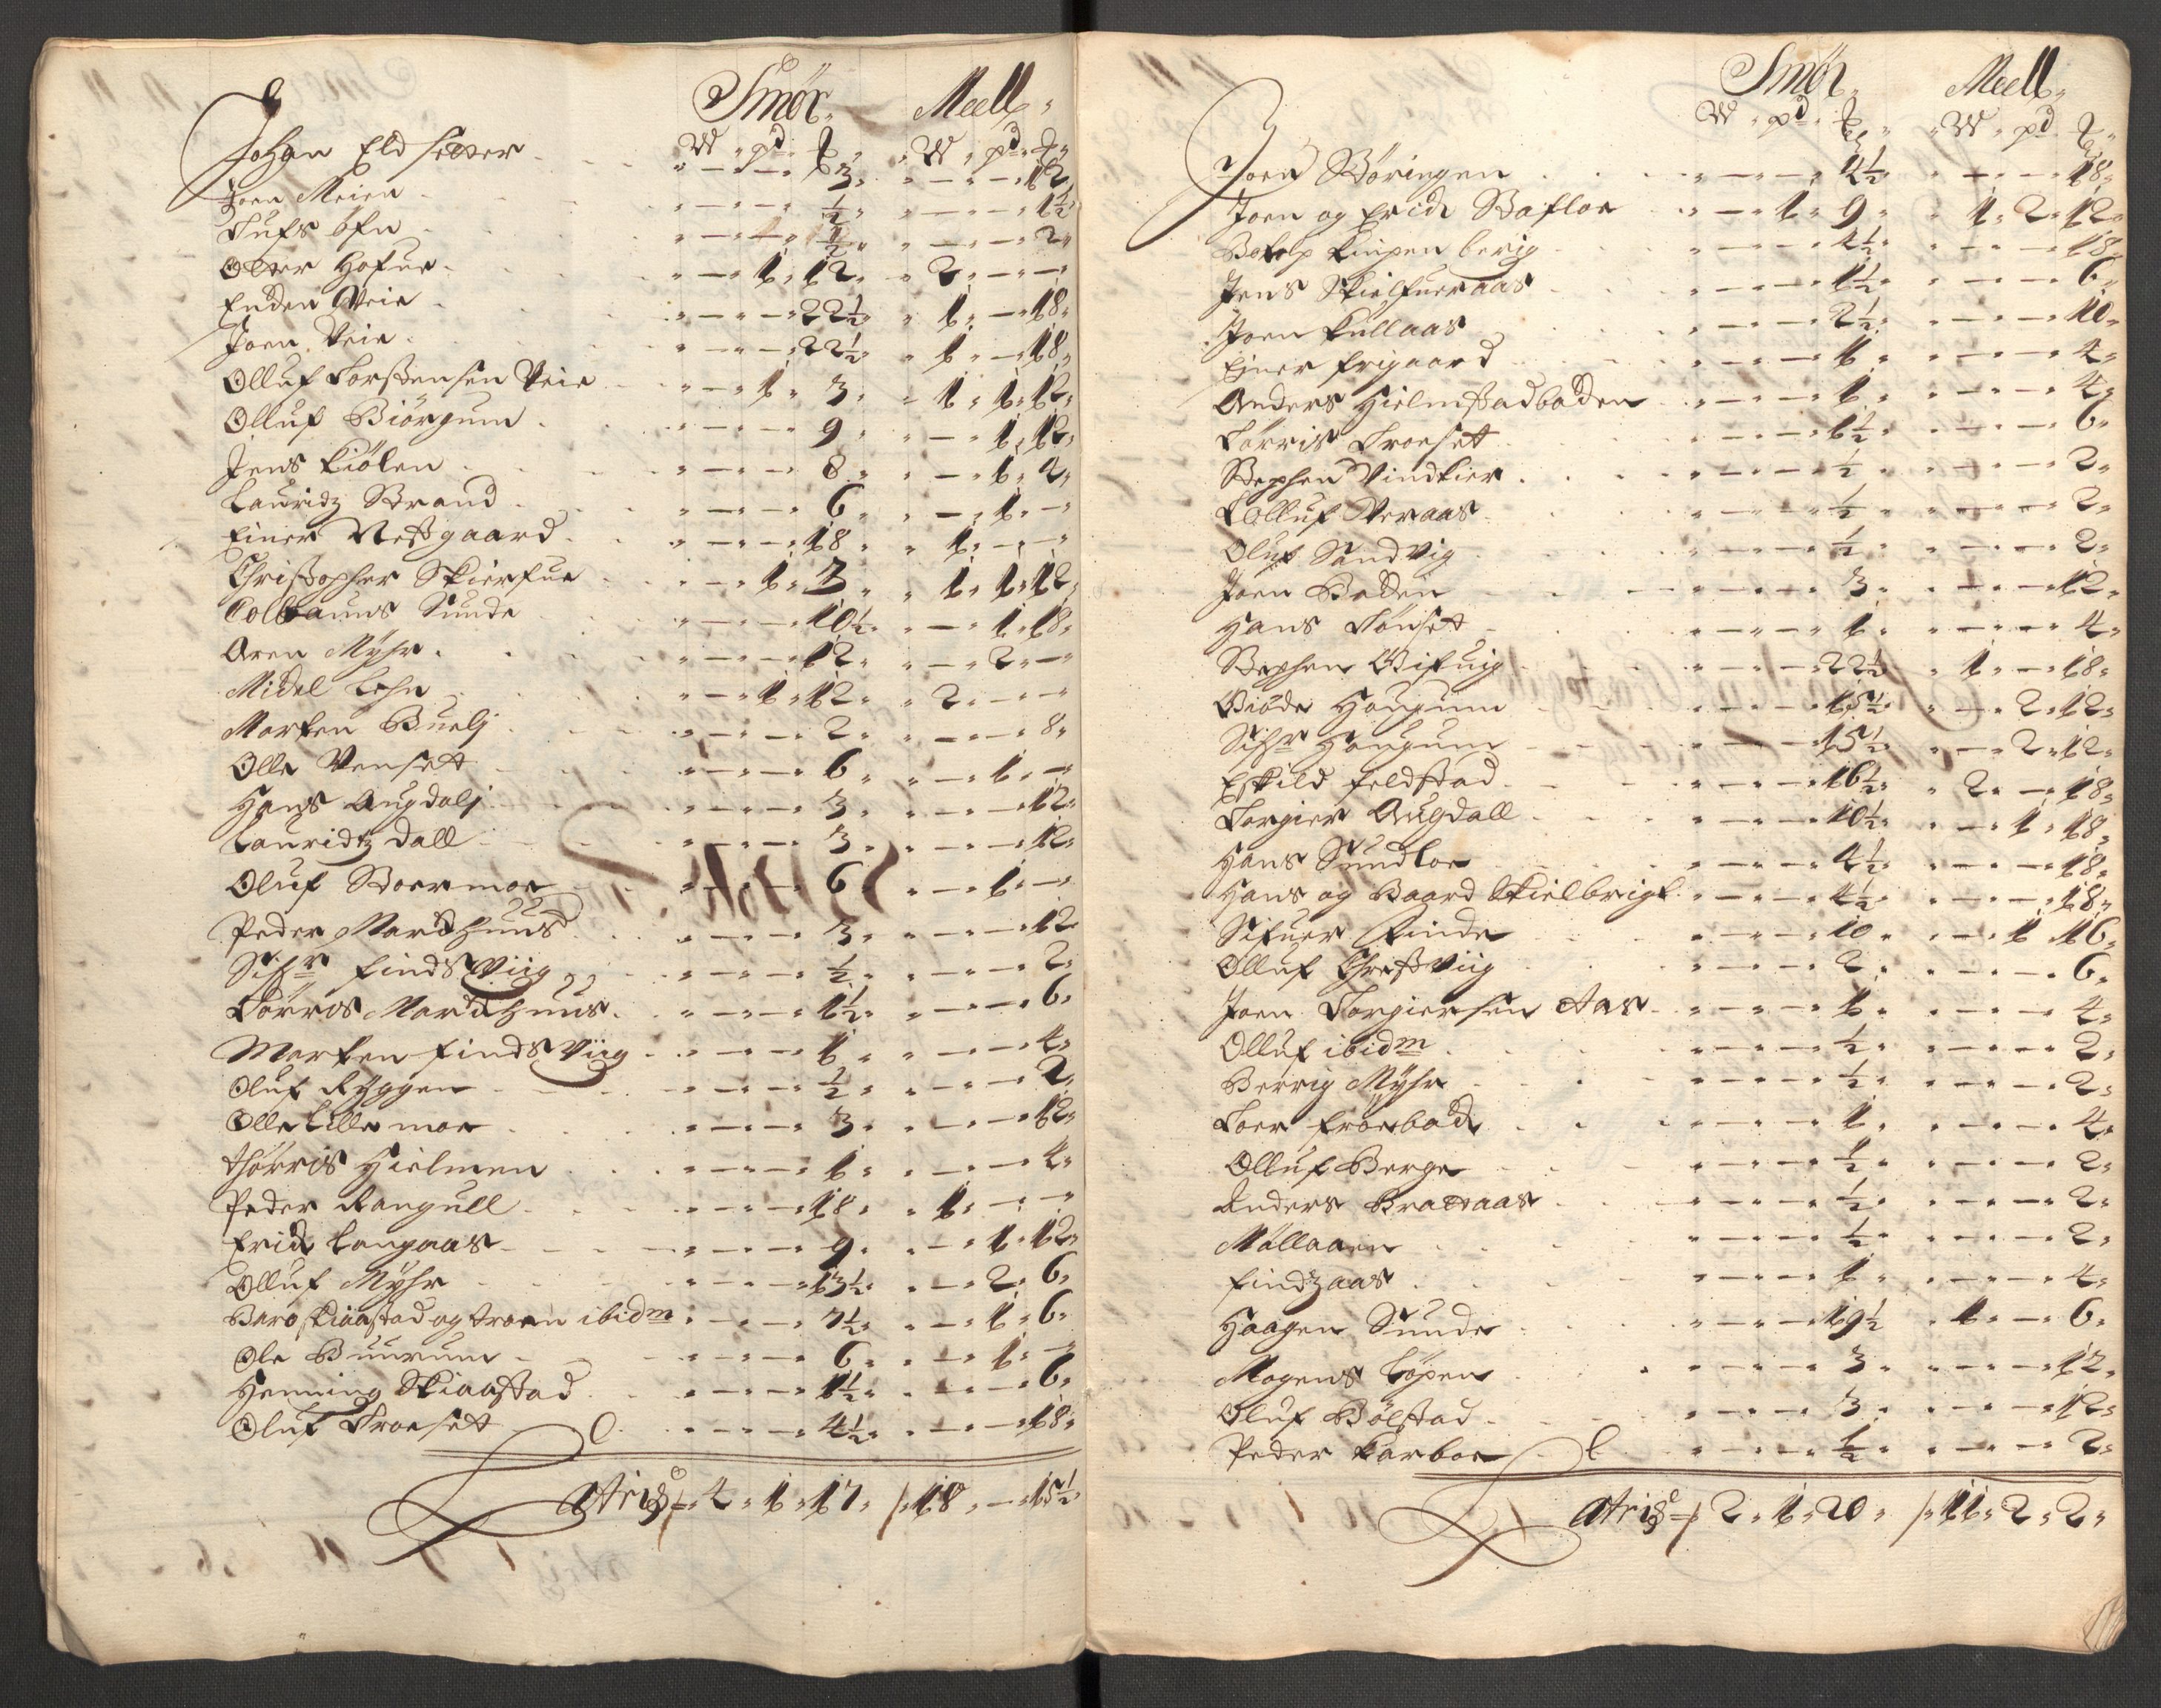 Smör Meell
W pd ℔ W pd ℔
Johan Eldsetter - - - 3 - - 12
Joen Meien - - ½ - - 1½
Tufs öfn - - ½ - - 2
Otter Hofue - 1 12 2 - -
Enden Veie - - 22½ 1 - 18
Joen Veie - - 22½ 1 - 18
Olluf Torstensen Veie - 1 3 1 1 12
Olluf Biörgum - - 9 - 1 12
Jens Kiölen - - 8 - 1 2
Lauridz Strand - - 6 - 1 -
Einer Nestgaard - - 18 1 - -
Christopher Skierfue - 1 3 1 1 12
Colbanus Sunde - - 10½ - 1 18
Aren Myhr - - 12 - 2 -
Midel Lehn - 1 12 2 - -
Morten Buelj - - 2 - - 8
Olle Venset - - 6 - 1 -
Hans Augdalj - - 3 - - 12
Lauridtz Dall - - 3 - - 12
Oluf Stoermoe - - 6 - 1 -
Peder Mardhuus - - 3 - - 12
Sihr Findsviig - - ½ - - 2
Törris Mardhuus - - 1½ - - 6
Morten Findsviig - - 1 - - 4
Oluf Ryggen - - ½ - - 2
Olle Lillemoe - - 3 - - 12
Thörris Hielmen - - 1 - - 4
Peder Rangull - - 18 1 - -
Erich Langaas - - 9 - 1 12
Olluf Myhr - - 13½ - 2 6
Baro Skiaastad og Troen ibidm - - 7½ - 1 6
Ole Buurum - - 6 - 1 -
Henning Skiaastad - - 1½ - - 6
Oluf Troeset - - 4½ - - 18
Atris 4 1 17 / 18 - 15½
Smör Meell
W pd ℔ W pd ℔
Joen Böringen - - 4½ - - 18
Joen og Erich Bafloe - 1 9 1 2 12
Botolp Kinpenberig - - 4½ - - 18
Jens Skielfueraas - - 1½ - - 6
Joen Kullaas - - 2½ - - 10
Einer Frigaard - - 1 - - 4
Anders Hielmstadbaden - - 1 - - 4
Törris Troeset - - 1½ - - 6
Stephen Vindkier - - ½ - - 2
Olluf Veraas - - ½ - - 2
Oluf Sandvig - - ½ - - 2
Joen Baden - - 3 - - 12
Hans Tönset - - 1 - - 4
Stephen Gifuig - - 22½ 1 - 18
Giöde Haugum - - 15½ - 2 12
Sihr Haugum - - 15½ - 2 12
Eskild Feldstad - - 16½ 2 - 18
Torgier Augdall - - 10½ - 1 18
Hans Sundloe - - 4½ - - 18
Hans og Baard Skielbrigt - - 4½ - - 18
Sifuer Kinde - - 10 - 1 16
Olluf Chrestviig - - 2 - - 6
Joen Torgiersen Aas - - 1 - - 4
Olluf ibidm - - ½ - - 2
Berrig Myhr - - ½ - - 2
Toer Fröesbach - - 1 - - 4
Olluf Berge - - ½ - - 2
Anders Brataas - - ½ - - 2
Möllaaen - - ½ - - 2
Findzaas - - 1 - - 4
Haagen Sunde - - 19½ 1 - 6
Mogens Löpen - - 3 - - 12
Oluf Bölstad - - 3 - - 12
Peder Karboe - - ½ - - 2
Atris / 2 1 20 / 11 2 2